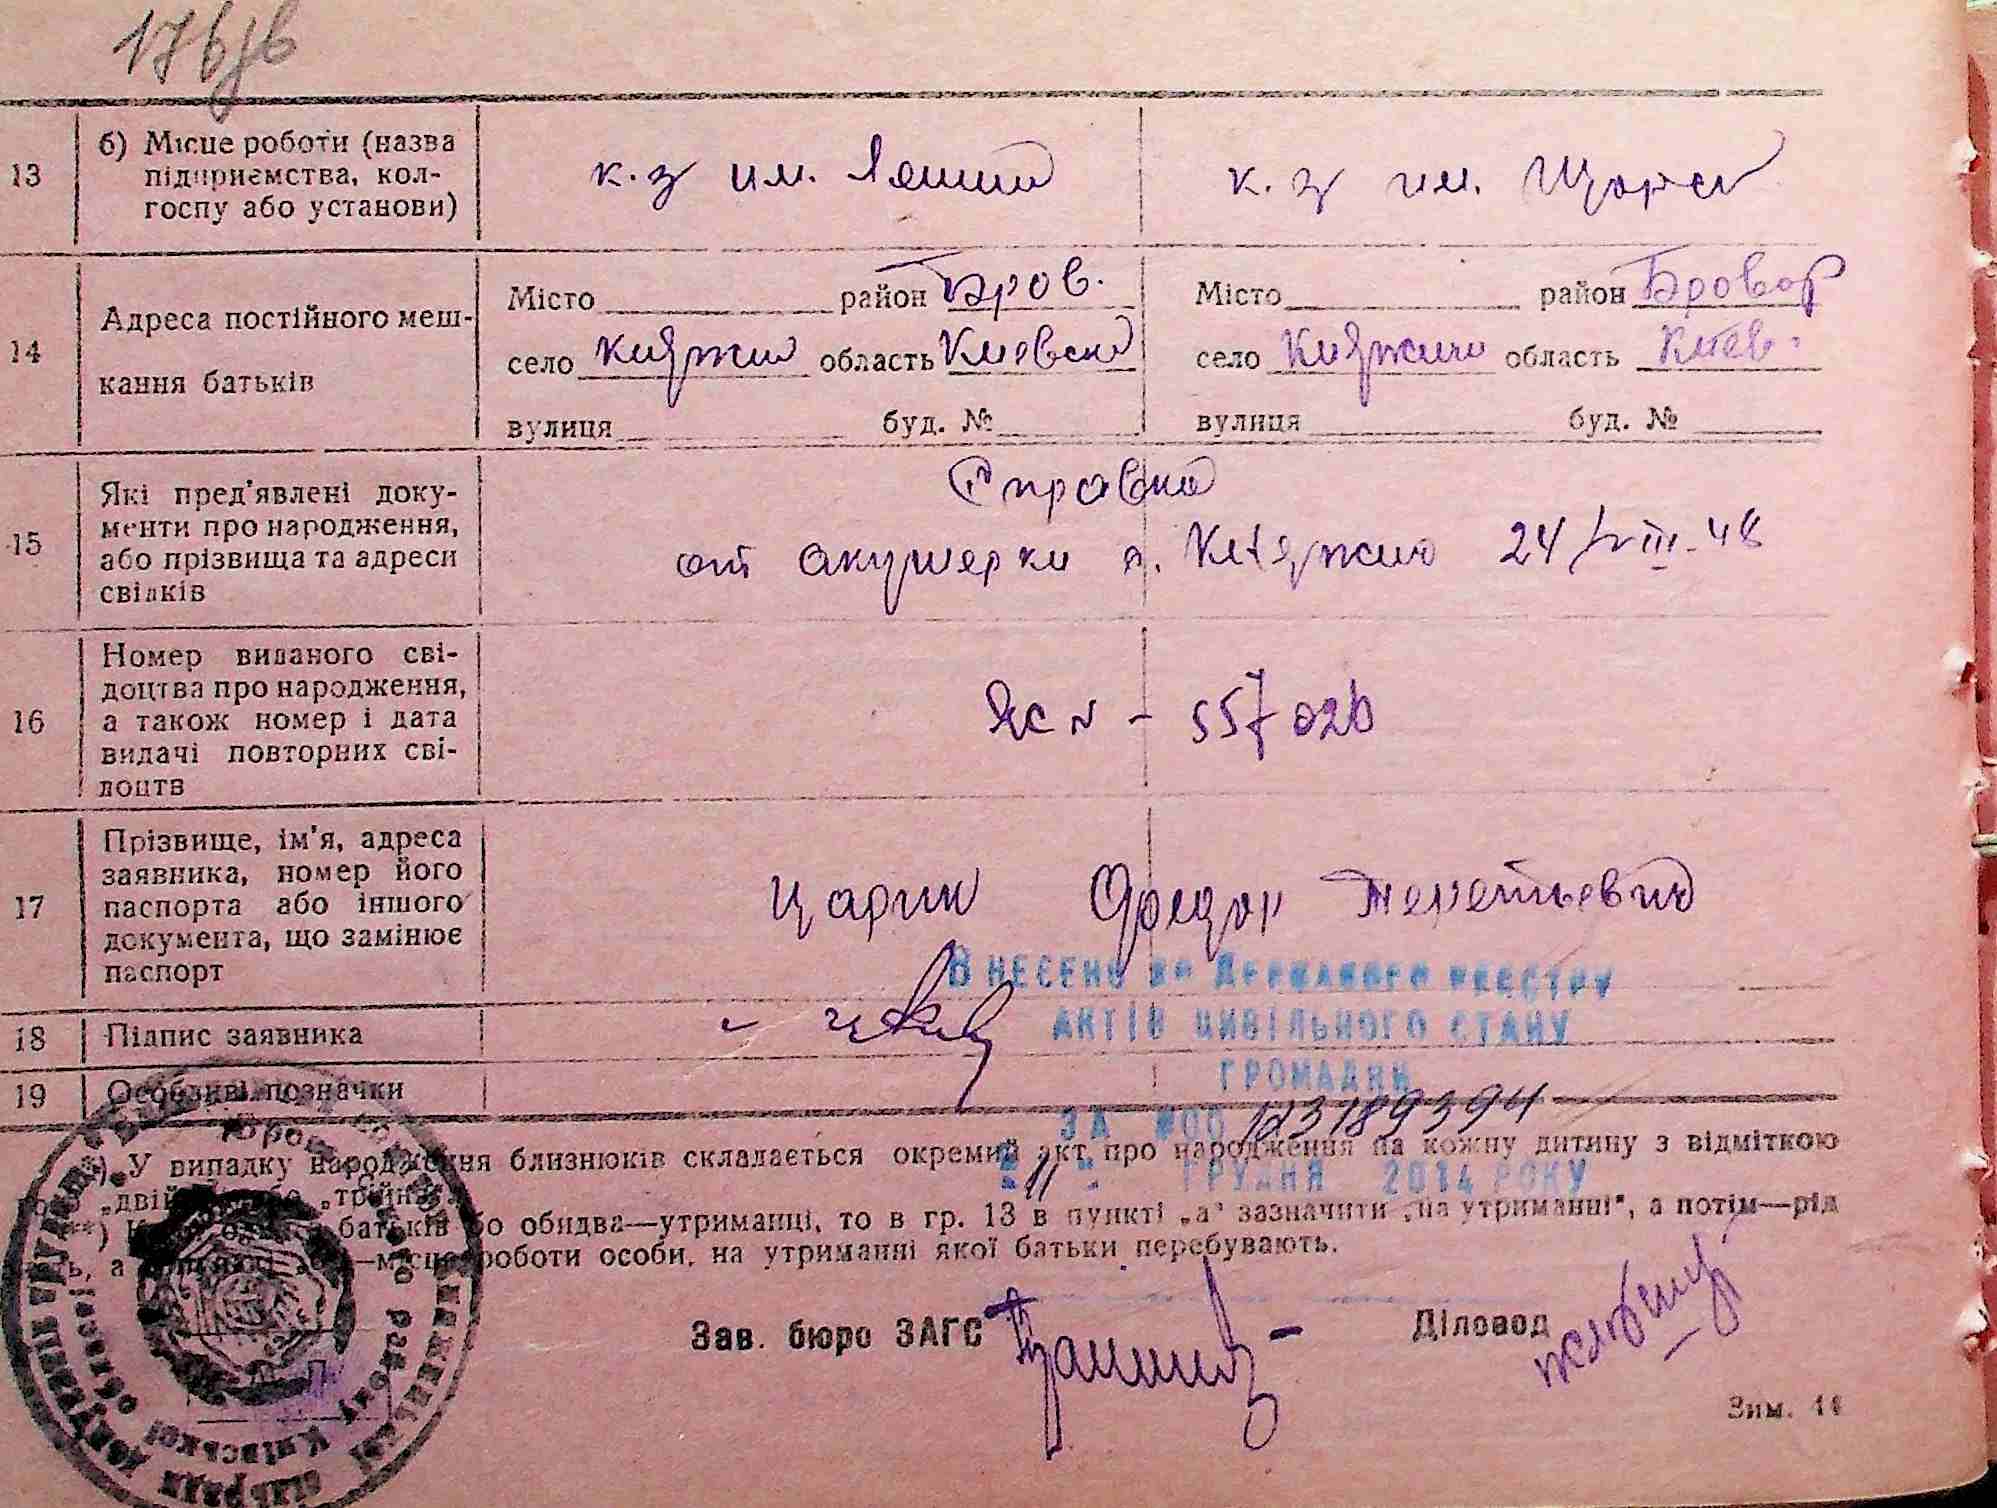 176/в
13 б) Місце роботи (назва підприємства, кол-
госпу або установи)
к.з им. Ленина
к.з им. Щорса
14 Адреса постійного меш-
кання батьків
Місто район Бров.
село Княжичи область Киевска
вулиця буд. №
Місто район Бровар
село Княжичи область Киев.
вулиця буд. №
15 Які пред'явлені доку-
менти про народження,
або прізвища та адреси
свідків
Справка
от акушерки с. Княжичи 24/VIII-48
16 Номер виданого сві-
доцтва про народження,
а також номер і дата
видачі повторних сві-
доцтв
ЯС № - 557026
17 Прізвище, ім'я, адреса
заявника, номер його
паспорта або іншого
документа, що замінює
паспорт
Царик Федор Терентьевич
Внесено до Державного реєстру
актів цивільного стану
громадян
18 Підпис заявника
19 Особливі позначки
за №00 123189394
"11" грудня 2014 року
*) У випадку народження близнюків складається окремий акт про народження на кожну дитину з відміткою
„двій або „трійн
**) батьків або обидва—утриманці, то в гр. 13 в пункті „а" зазначити „на утриманні", а потім—рід
а —місце роботи особи, на утриманні якої батьки перебувають.
Зав. бюро ЗАГС
Діловод
Зим. 44